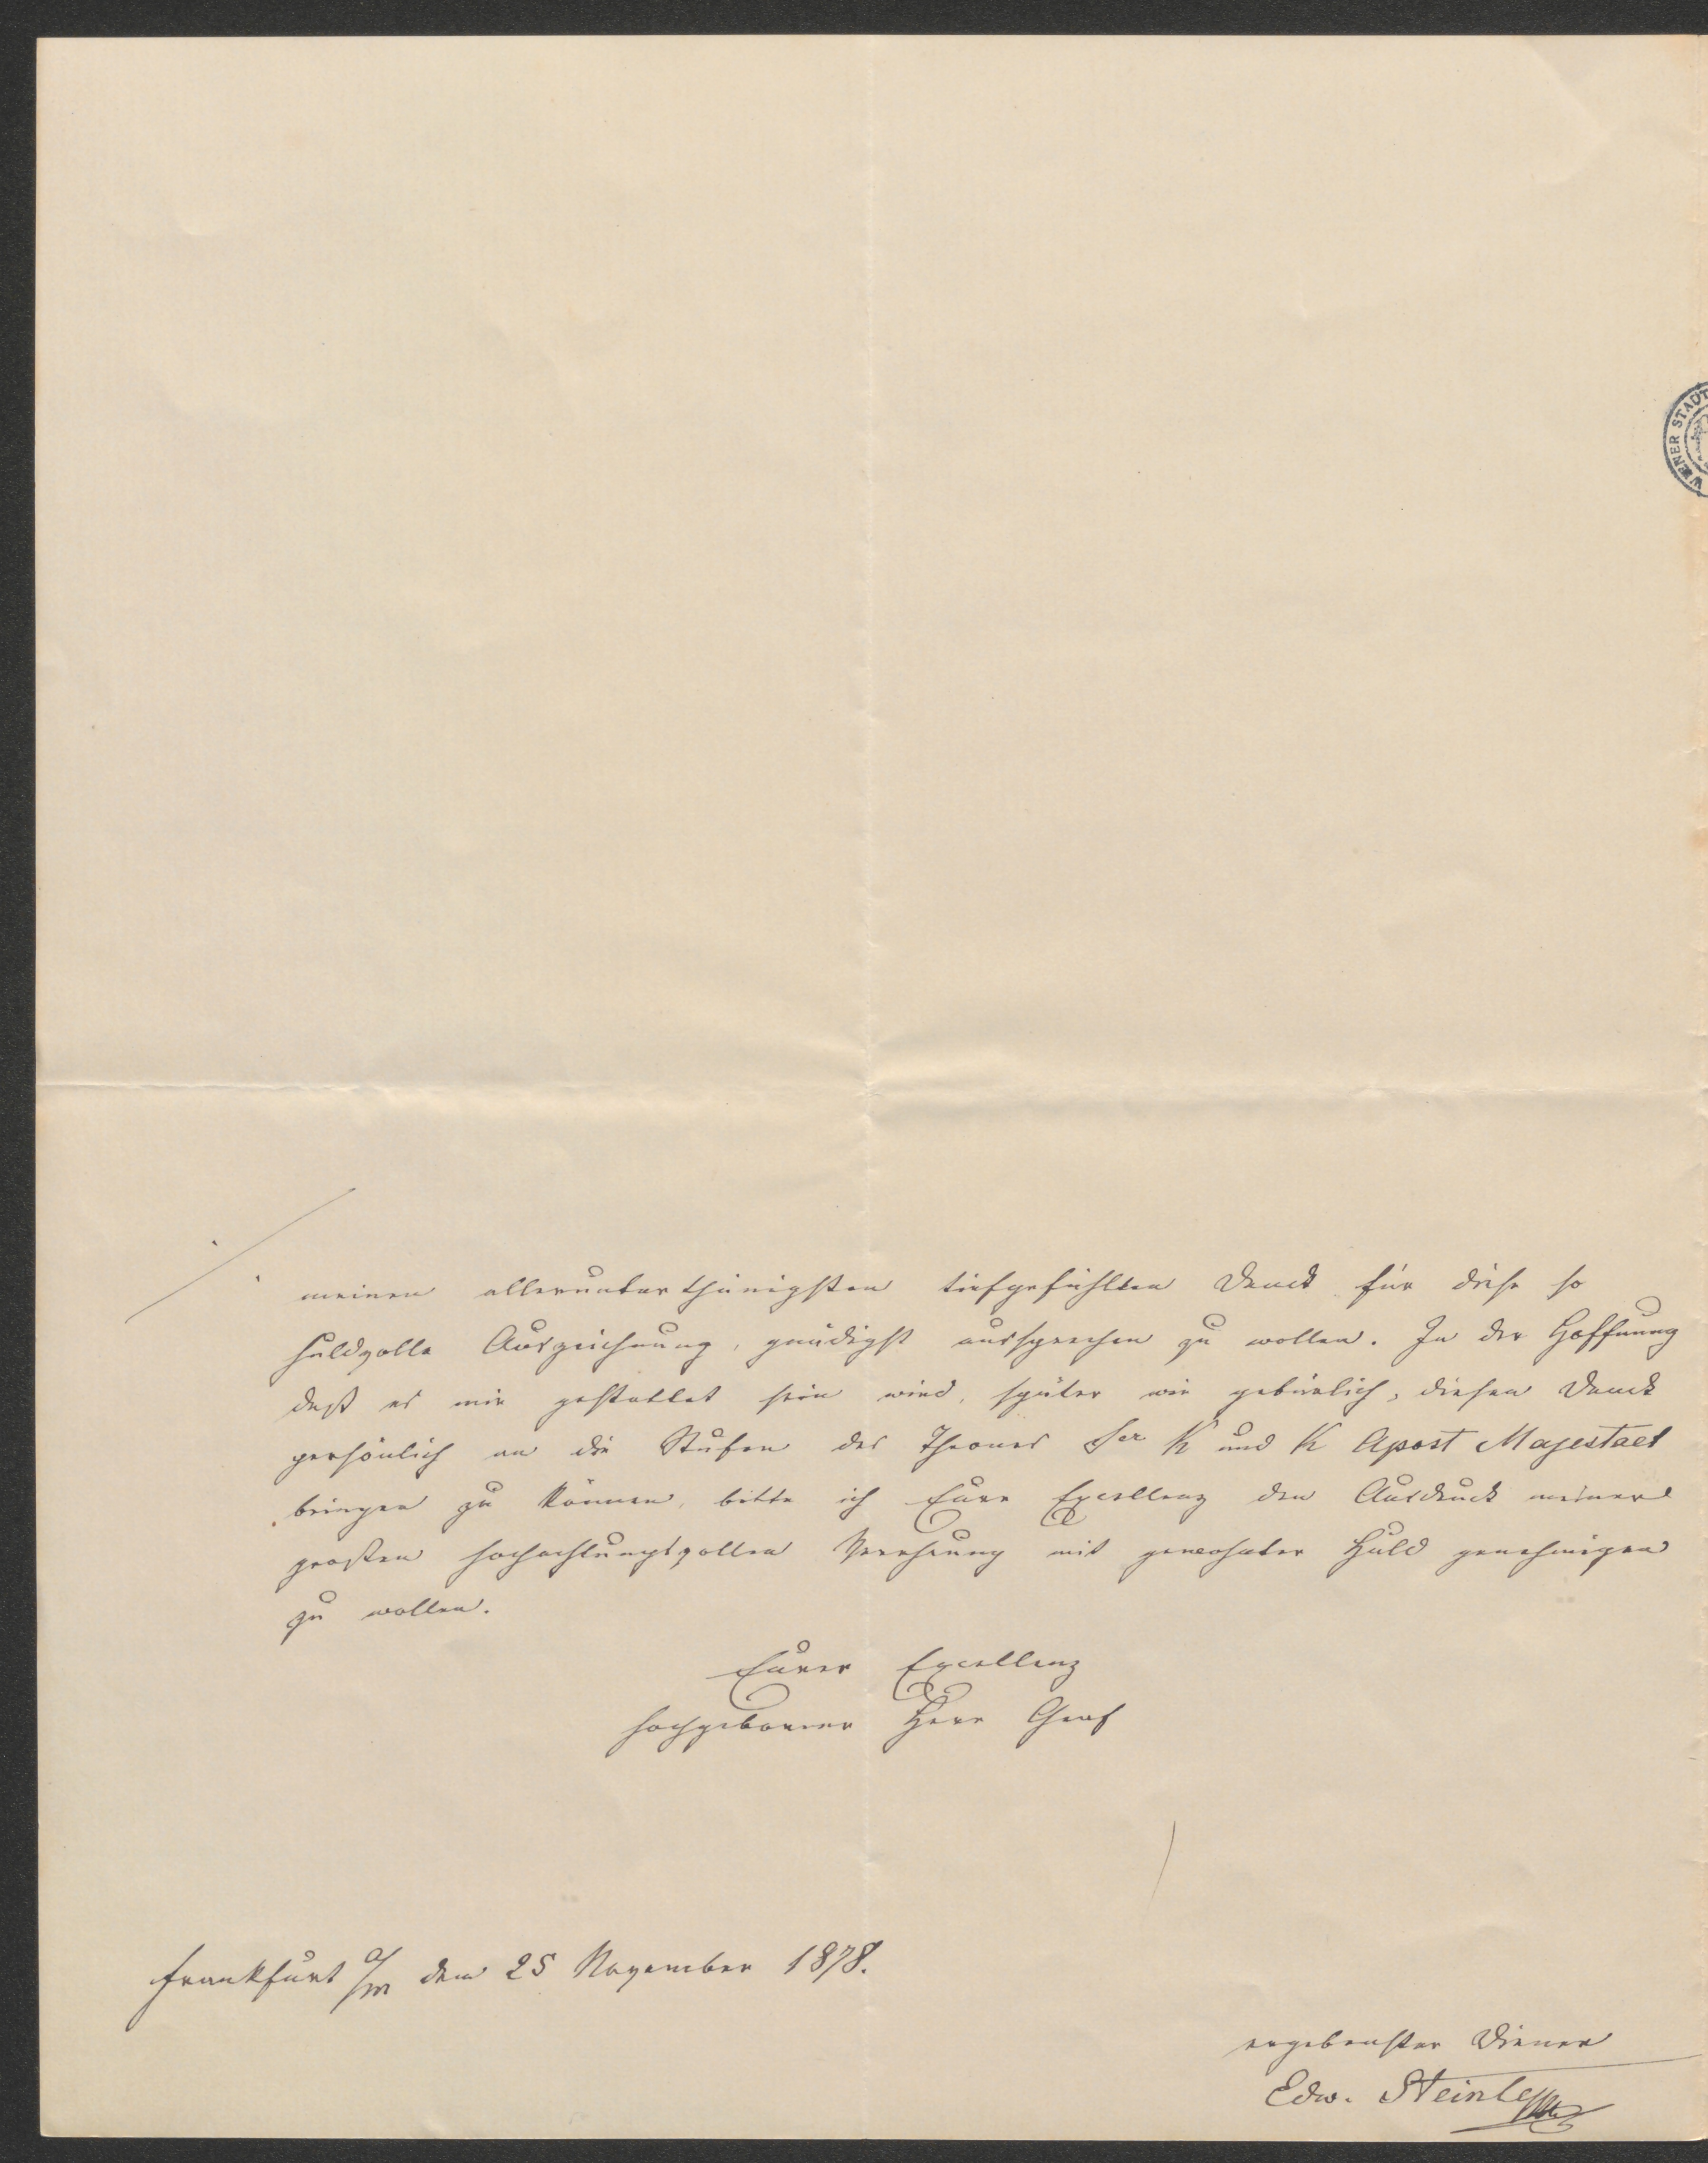 WIENER STADT
meinen allerunterthänigsten tiefgefühlten Dank für diese so
huldvolle Auszeichnung, gnädigst aussprechen zu wollen. In der Hoffnung
daß es mir gestattet sein wird, später wie gebürlich, diesen Dank
persönlich an die Stufen des Thrones Ser K und K Apost Majestaet
bringen zu können, bitte ich Eure Excellenz den Ausdruck meiner
großen hochachtungsvollen Verehrung mit gewohnter Huld genehmigen
zu wollen.
Eurer Excellenz
hochgeborner Herr Graf
Frankfurt a/m den 25 November 1878.
ergebenster Diener
Edw. Steinle